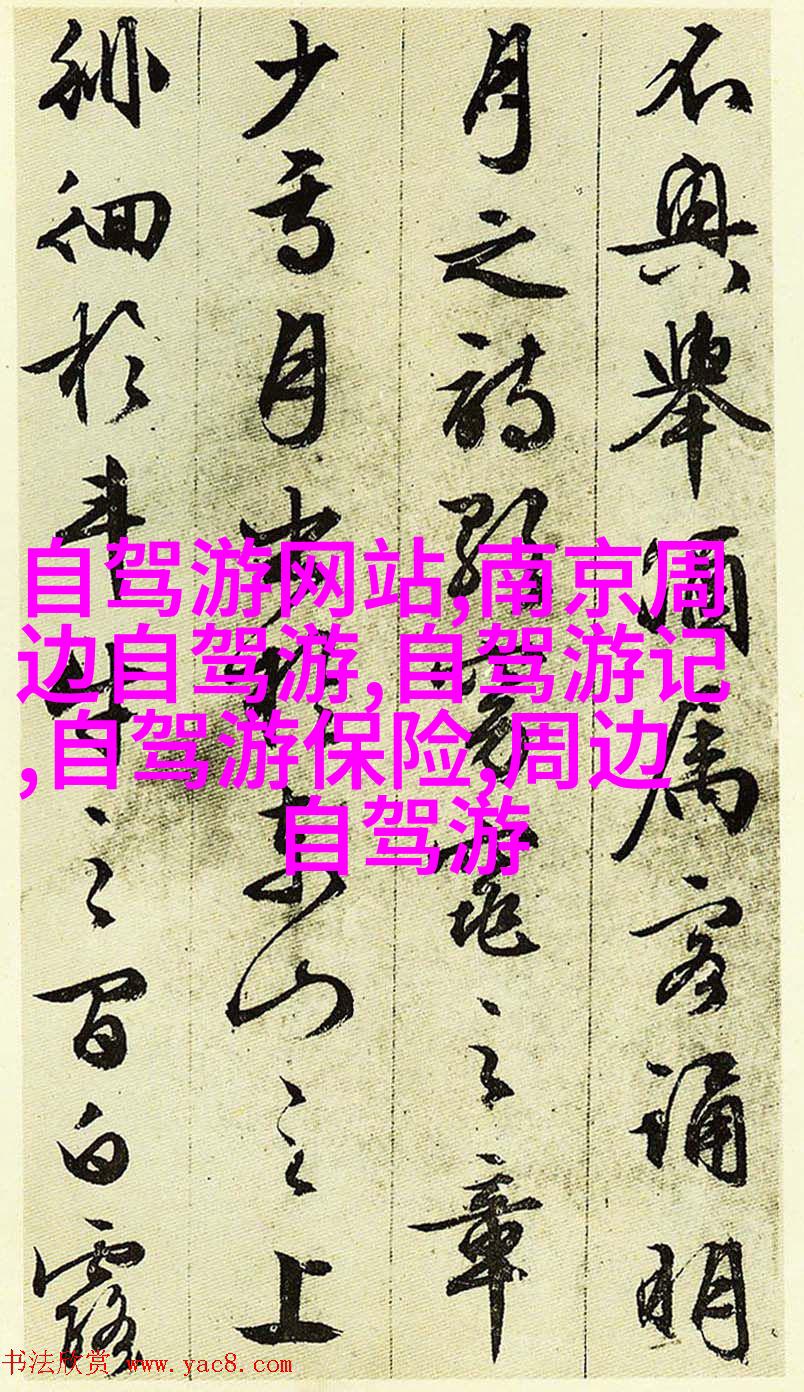 不興舉酒屬客誦明
月之詩歌窈窕之章
少焉月出於東山之上
徘徊於斗牛之間白露
自驾游网站,南京周
边自驾游,自驾游记
,自驾游保险,周边
自驾游
书法欣赏 www.yac8.com